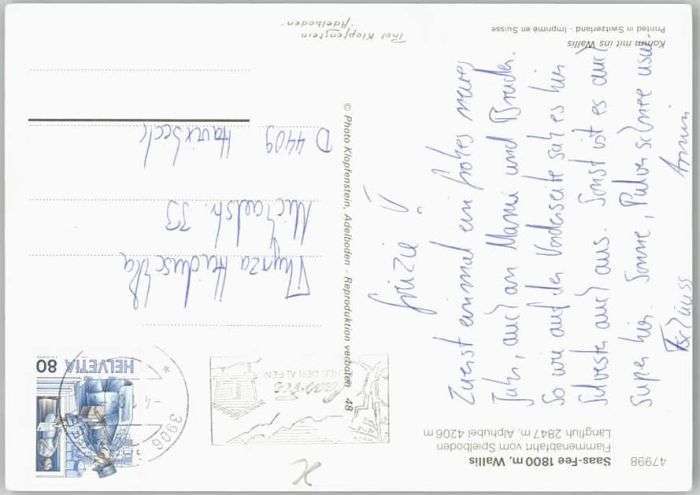 47998
Saas-Fee 1800 m, Wallis
Flammenabfahrt vom Spielboden
Längfluh 2847 m, Alphubel 4206 m
Grüzie!
Zuerst einmal ein frohes neues
Jahr, auch an Mama und Bruder.
So wie auf der Vorderseite sah es hier
Silvester auch aus. Sonst ist es auch
super hier. Sonne, Pulverschnee usw.
Tschüuss
Armin
© Photo Klopfenstein, Adelboden - Reproduktion verboten 48
HELVETIA 80
3906
SAAS-FEE
Thynza Heiduschka
Michaelstr. 33
D 4409 Havixbeck
Thol Klopfenstein
Adelboden
Komm mit ins Wallis
Printed in Switzerland - Imprimé en Suisse